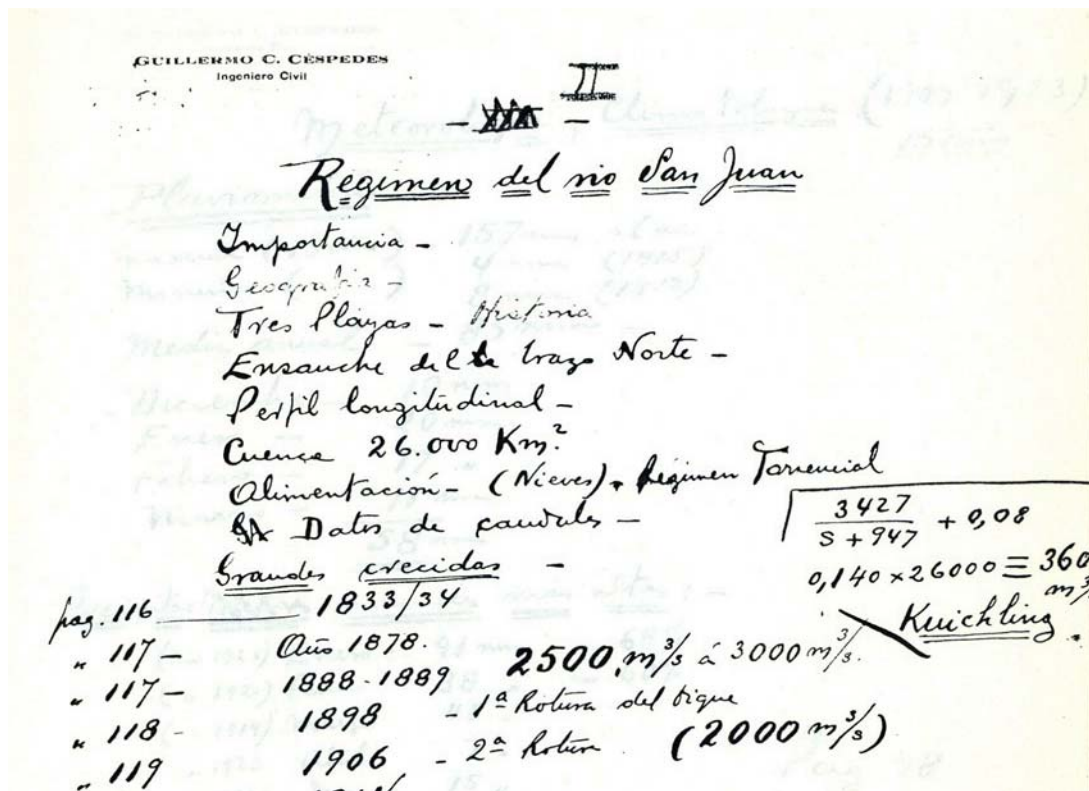 GUILLERMO C. CÉSPEDES
Ingeniero Civil
- II -
Régimen del rio San Juan
Importancia -
Geografia -
Tres Playas - Historia
Ensanche del brazo Norte -
Perfil longitudinal -
Cuenca 26.000 Km²
Alimentación - (Nieves). Régimen Torrencial
Datos de caudales -
3427 / S + 947 + 0,08
0,140 x 26000 = 360
m³/
Kuichling.
Grandes crecidas -
pag. 116 1833/34
" 117 - Año 1878.
2500 m³/s á 3000 m³/s.
" 117 - 1888-1889
" 118 1898 - 1ª Rotura del dique
" 119 1906 - 2ª Rotura (2000 m³/s)